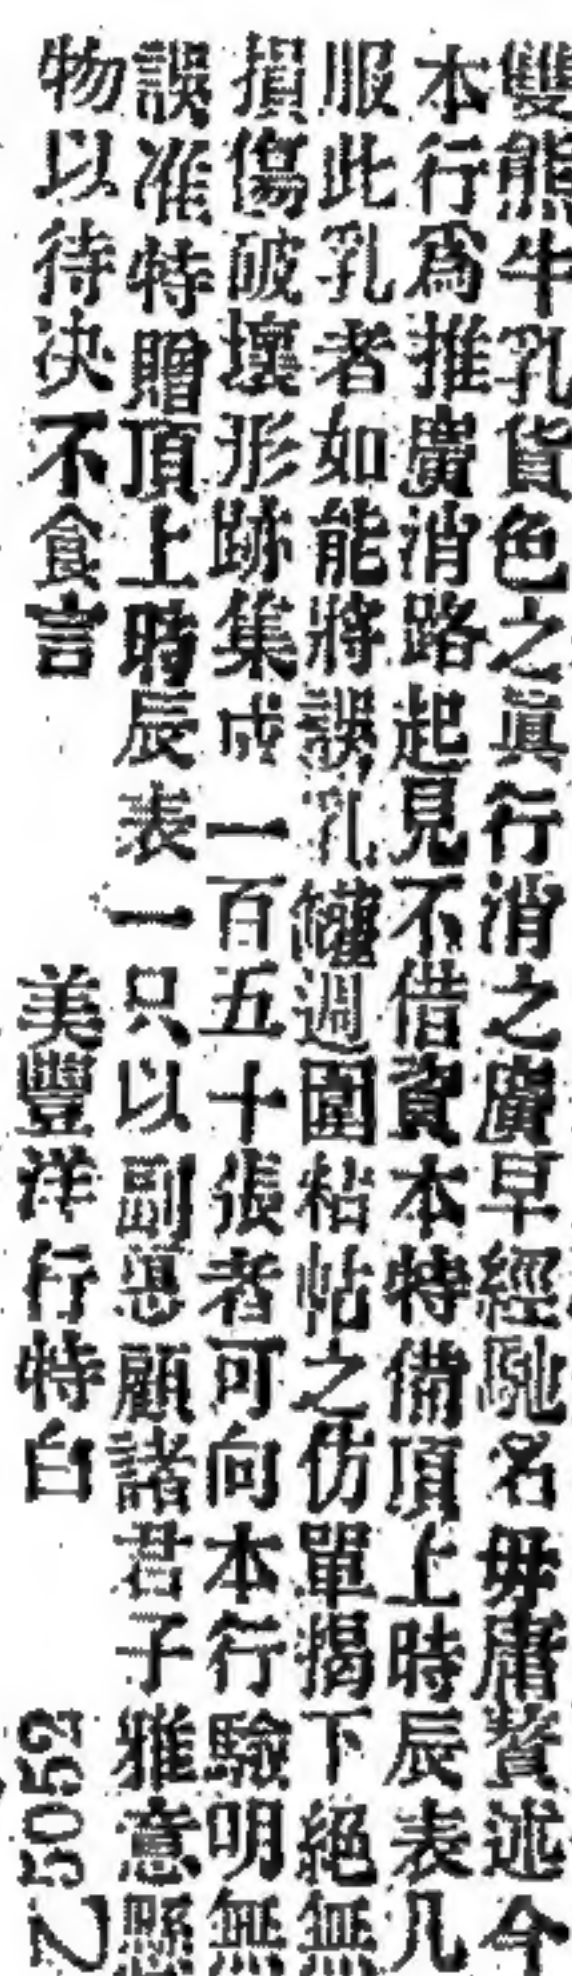 雙熊牛乳貨色之眞行消之廣早經馳名毋庸贅述今
本行爲推廣消路起見不借資本特備頂上時辰表几
服此乳者如能將誤乳罐週圍粘帖之仿單揭下絕無
損傷破壞形跡集成一百五十張者可向本行驗明無
誤准特贈頂上時辰表一只以副惠顧諸君子雅意懸
物以待決不食言 美豐洋行特白 Z5052